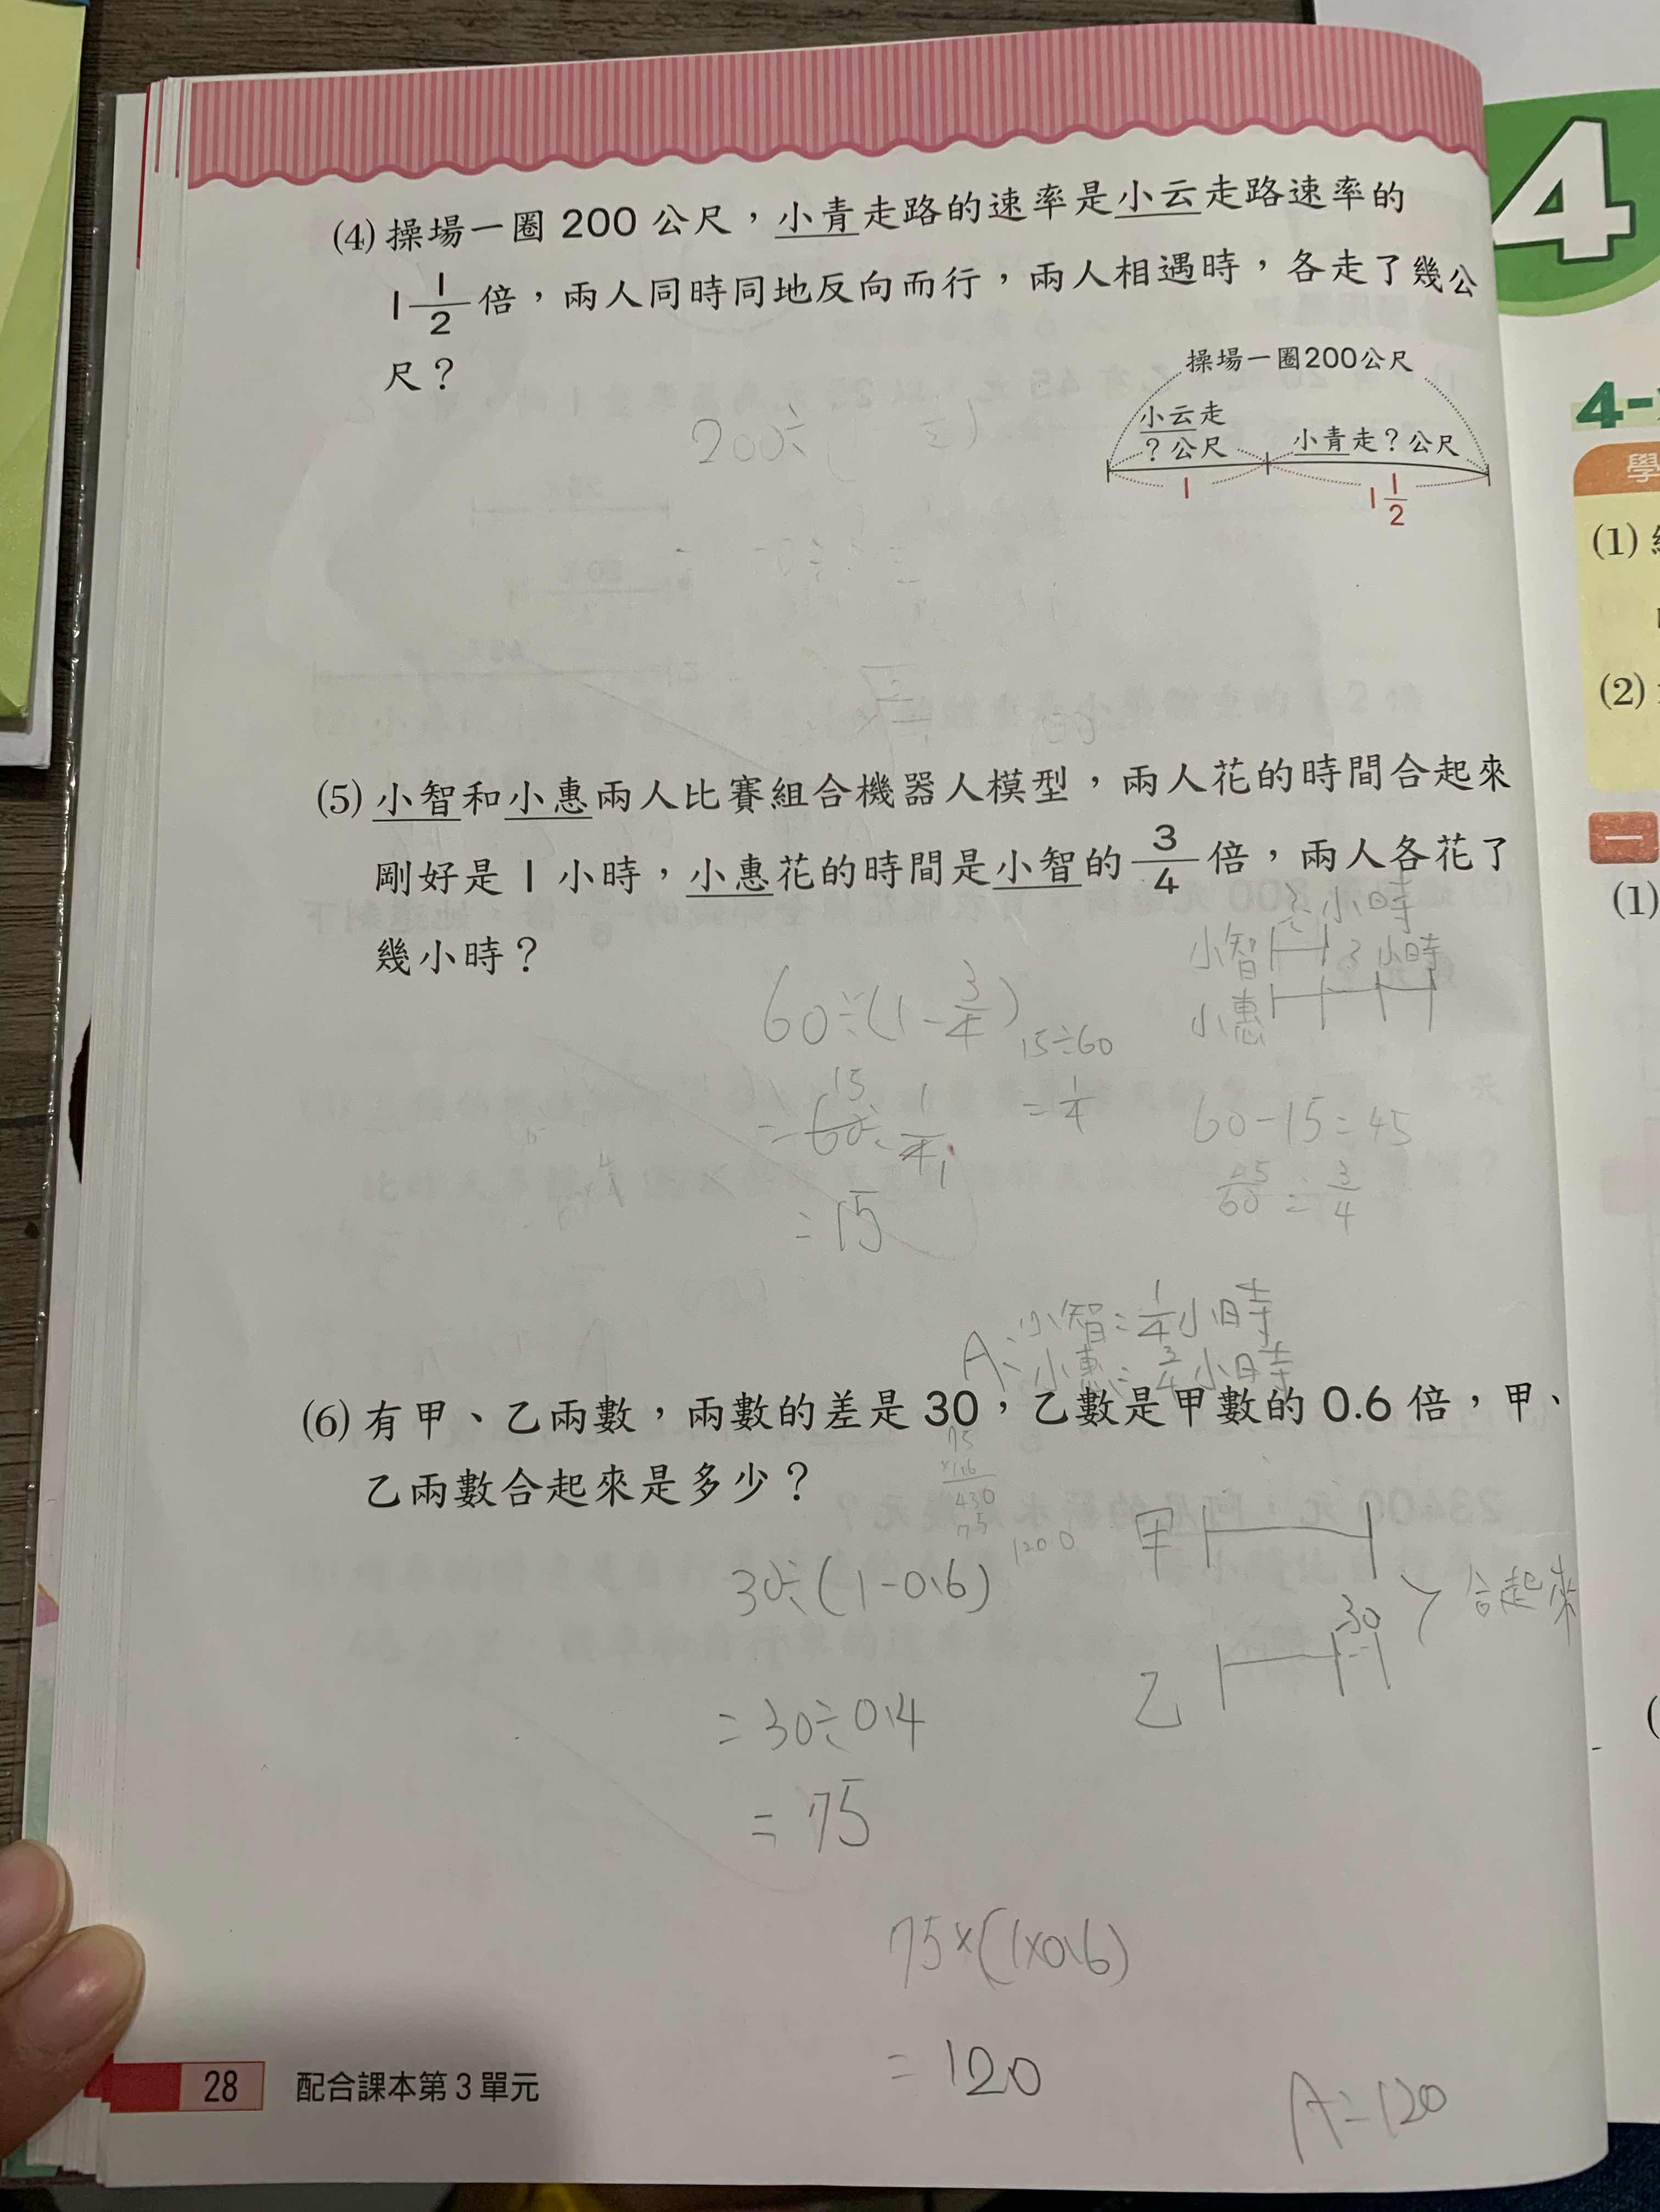 (4) 操場一圈 200 公尺，小青走路的速率是小云走路速率的
1 1/2 倍，兩人同時同地反向而行，兩人相遇時，各走了幾公
尺？
操場一圈200公尺
小云走
？公尺
小青走？公尺
1
1 1/2
200÷(
(5) 小智和小惠兩人比賽組合機器人模型，兩人花的時間合起來
剛好是 1 小時，小惠花的時間是小智的 3/4 倍，兩人各花了
幾小時？
?小時
小智
?小時
小惠
60÷(1-3/4)
15÷60
=1/4
=60÷1/4
15
1
=15
60-15=45
45/60=3/4
A:小智:1/4小時
小惠:3/4小時
(6) 有甲、乙兩數，兩數的差是 30，乙數是甲數的 0.6 倍，甲、
乙兩數合起來是多少？
75
×1.6
430
75
1200
30÷(1-0.6)
=30÷0.4
=75
甲
30
合起來
乙
75×(1×0.6)
=120
A:120
28
配合課本第 3 單元
4
4-
學
(1)
(2)
一
(1)